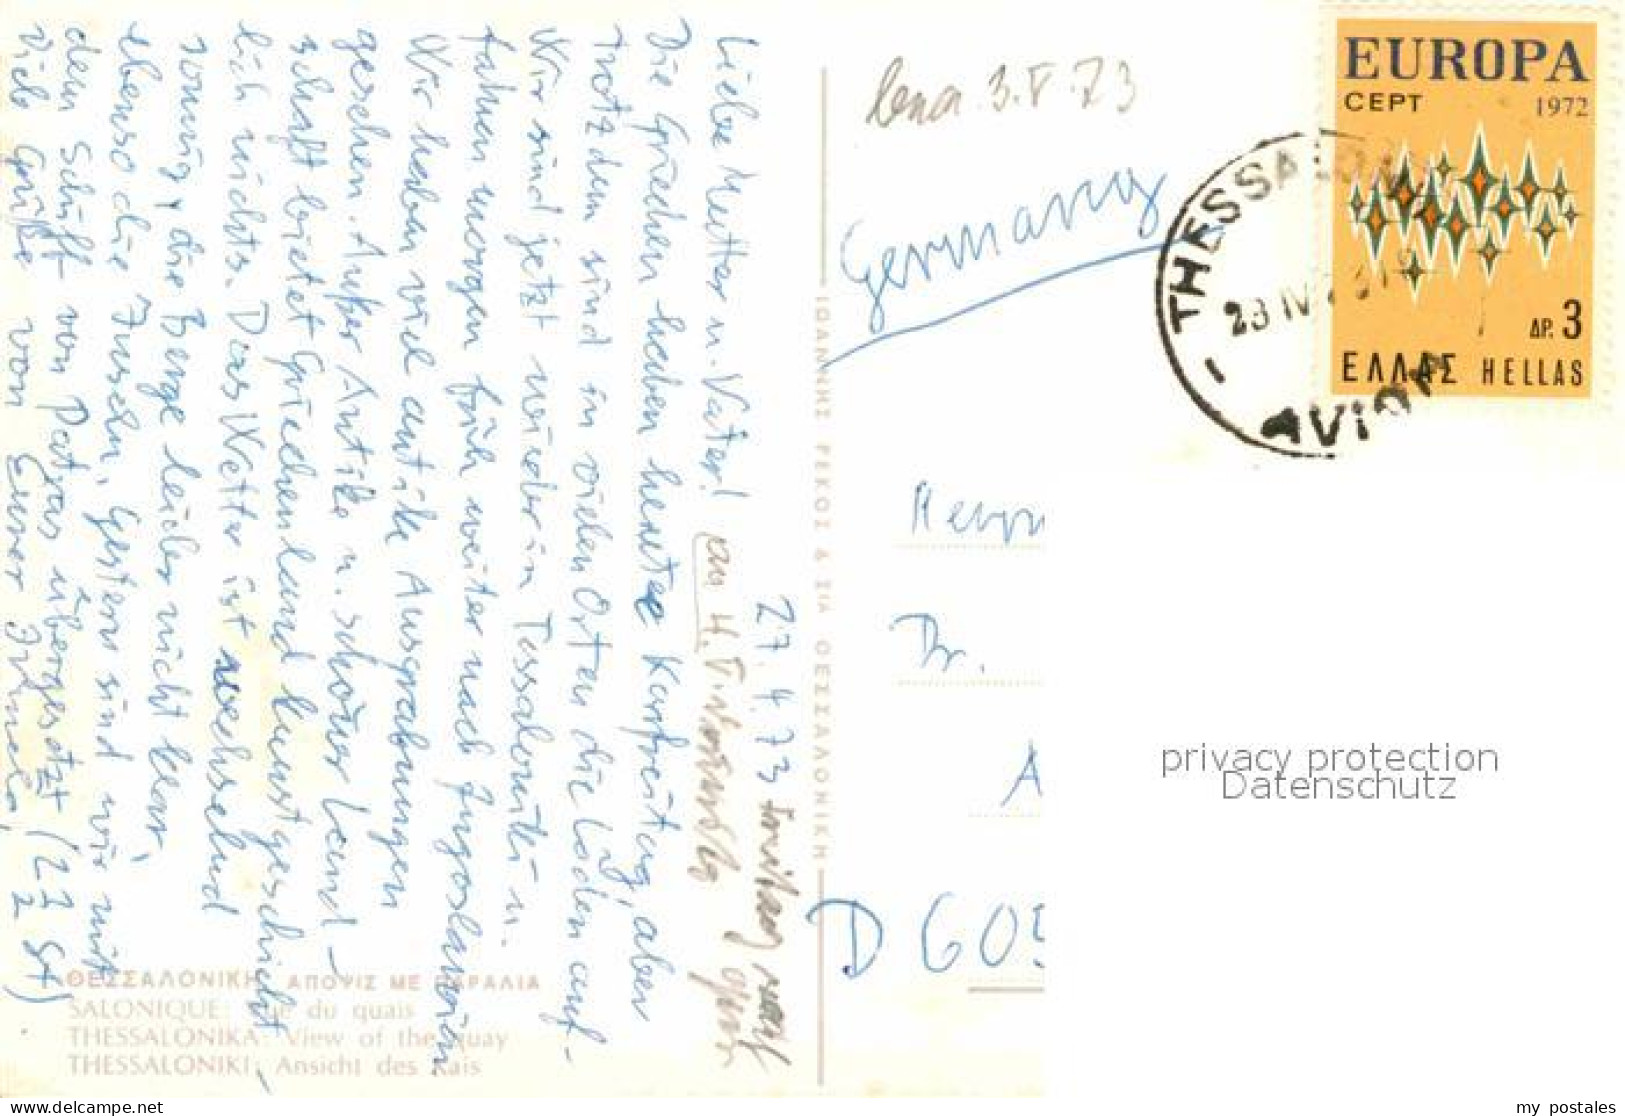 27.4.73
Liebe Mutter u. Vater! an 4. V.
Die Griechen haben heute Karfreitag, aber
trotzdem sind in vielen Orten die Läden auf-
Wir sind jetzt wieder in Tessaloniki u.
fahren morgen früh weiter nach Jugoslawien
Wir haben viel antike Ausgrabungen
gesehen. Außer Antike u. schöner Land-
schaft bietet Griechenland kunstgeschicht-
lich nichts. Das Wetter ist wechselnd
sonnig, die Berge leider nicht klar,
ebenso die Inseln. Gestern sind wir mit
dem Schiff von Patras übergesetzt (2 1/2 St)
Viele Grüße von Eurer
ΘΕΣΣΑΛΟΝΙΚΗ ΑΠΟΨΙΣ ΜΕ ΠΑΡΑΛΙΑ
SALONIQUE: Vue du quais
THESSALONIKA: View of the quay
THESSALONIKI: Ansicht des Kais
ΙΩΑΝΝΗΣ ΡΕΚΟΣ & ΣΙΑ ΘΕΣΣΑΛΟΝΙΚΗ
3.V.73
Germany
EUROPA
CEPT 1972
ΔΡ. 3
ΕΛΛΑΣ HELLAS
THESSALONIKI
AVION
Dr.
A
D 605
privacy protection
Datenschutz
my postales